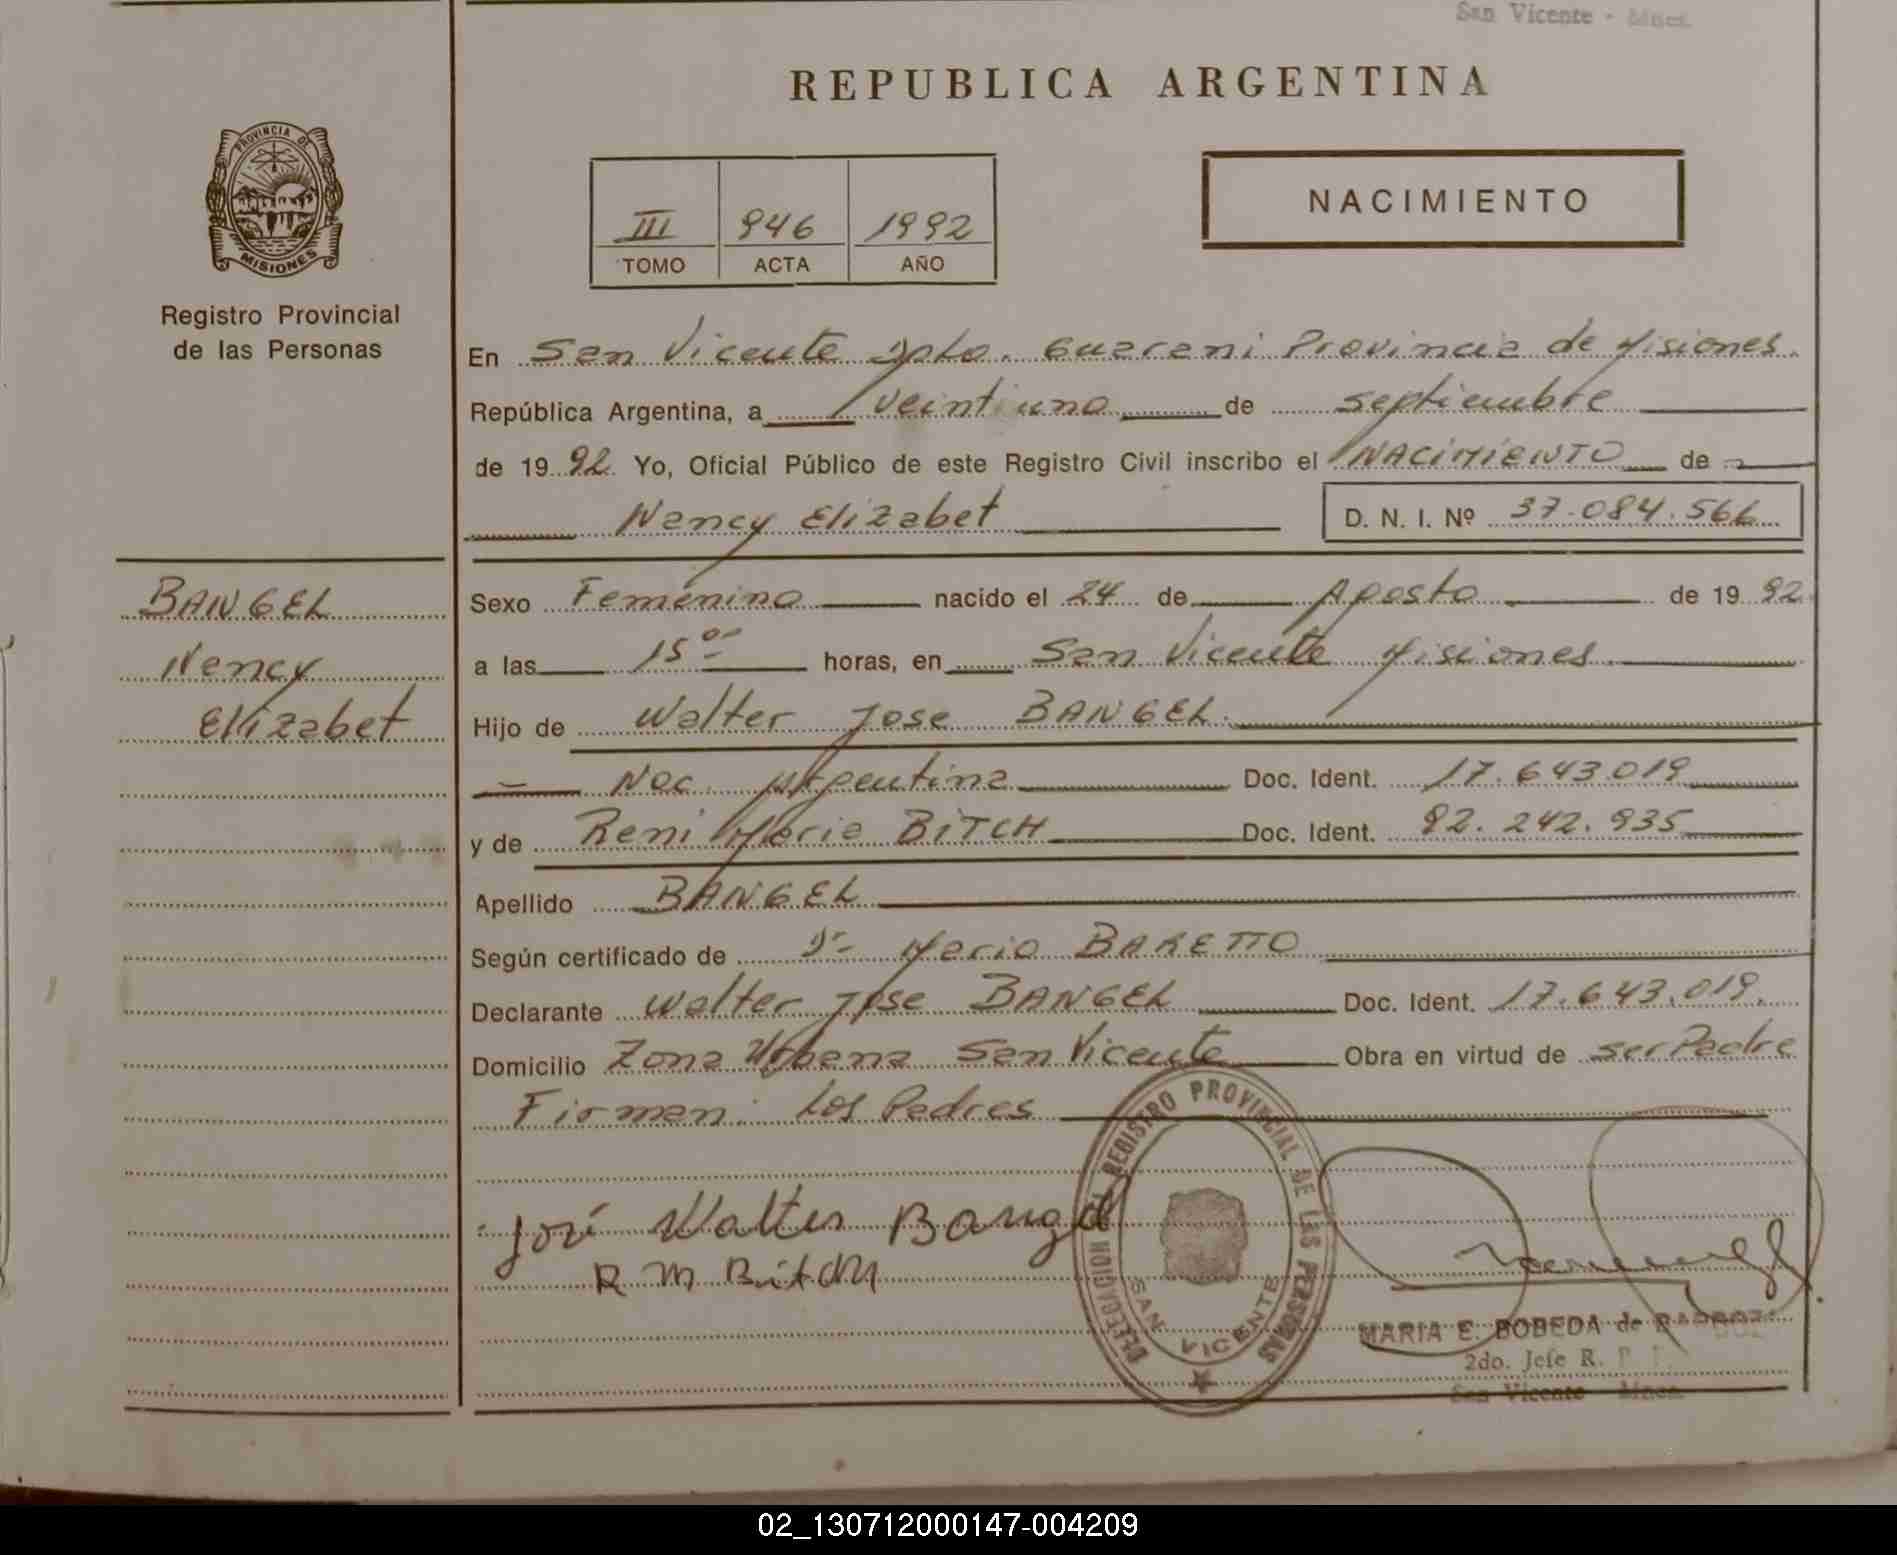 San Vicente - Mnes.
REPUBLICA ARGENTINA
PROVINCIA DE MISIONES
Registro Provincial
de las Personas
III 946 1992
TOMO ACTA AÑO
NACIMIENTO
En San Vicente Dpto. Guarani Provincia de Misiones.
República Argentina, a veintiuno de septiembre
de 1992 Yo, Oficial Público de este Registro Civil inscribo el NACIMIENTO de
Nancy Elizabet D. N. I. Nº 37.084.566
BANGEL
Nancy
Elizabet
Sexo Femenino nacido el 24 de Agosto de 1992
a las 15 00 horas, en San Vicente Misiones
Hijo de Walter Jose BANGEL.
Nac. Argentina Doc. Ident. 17.643.019
y de Reni Maria BiTCH Doc. Ident. 92.242.935
Apellido BANGEL
Según certificado de Dr Mario BARETTO
Declarante Walter Jose BANGEL Doc. Ident. 17.643.019.
Domicilio Zona Urbana San Vicente Obra en virtud de ser Padre
Firman: Los Padres
José Walter Bangel
R M Bitch
DELEGACION REGISTRO PROVINCIAL DE LAS PERSONAS
SAN VICENTE
MARIA E. BOBEDA de
2do. Jefe R. P.
San Vicente Mnes.
02_130712000147-004209